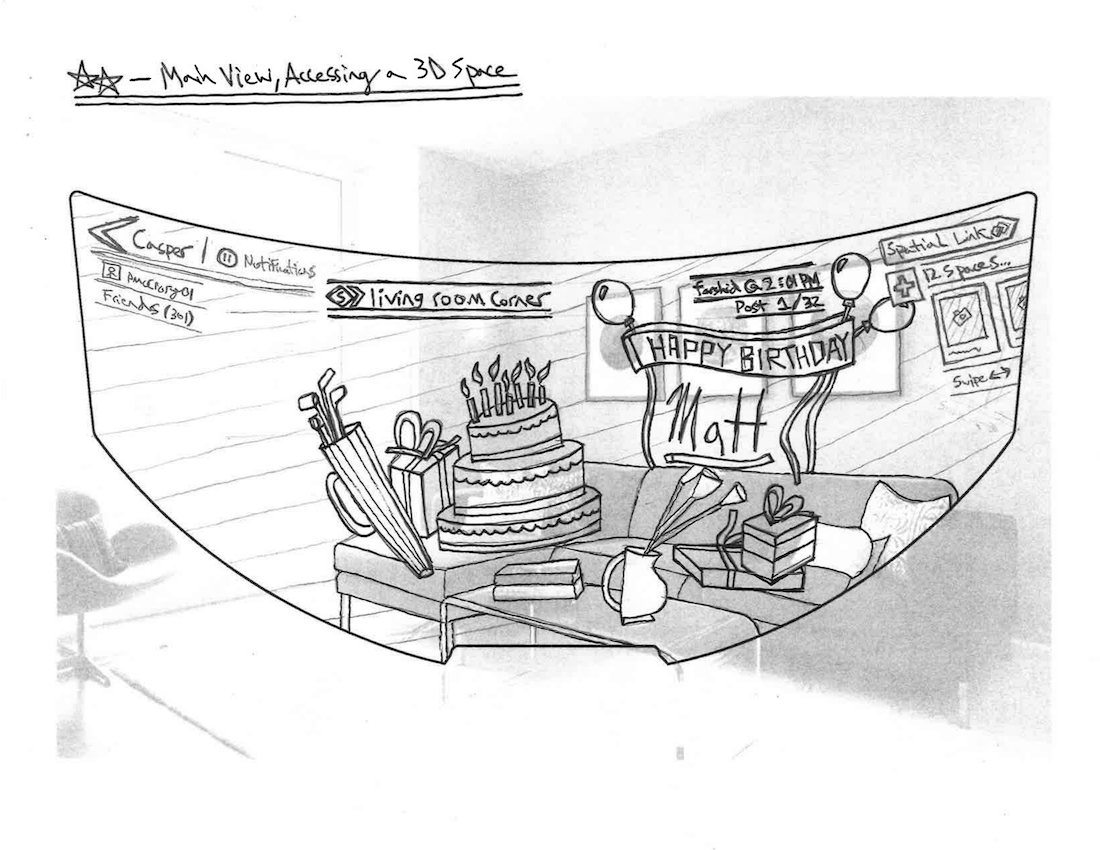 — Main View, Accessing a 3D Space
Casper | Notifications
pmccrory01
Friends (301)
S living room corner
Farshid @ 2:01 PM
Post 1/32
Spatial Link
12 Spaces...
Swipe
HAPPY BIRTHDAY
Matt